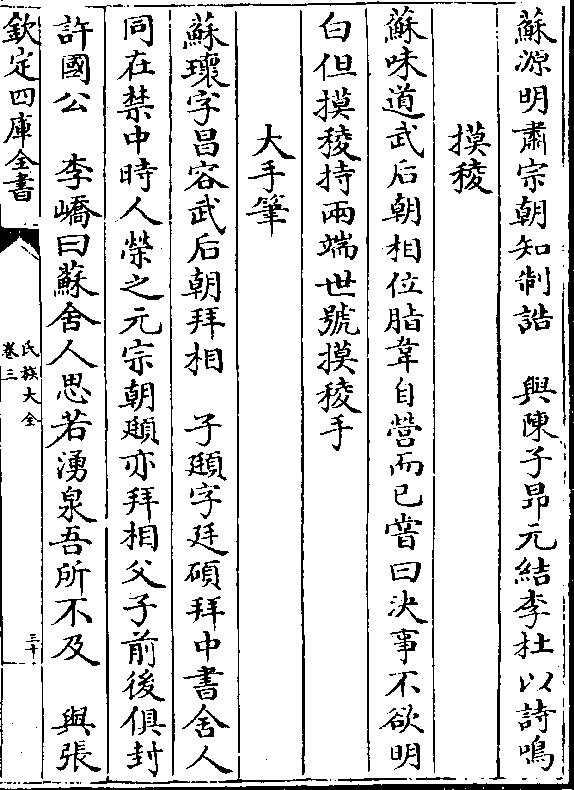 蘇源明肅宗朝知制誥　與陳子昂元結李杜以詩鳴
摸稜
蘇味道武后朝相位脂韋自營而已嘗曰決事不欲明
白但摸稜持兩端世號摸稜手
大手筆
蘇瓌字昌容武后朝拜相　子頲字廷碩拜中書舍人
同在禁中時人榮之元宗朝頲亦拜相父子前後俱封
許國公　李嶠曰蘇舍人思若湧泉吾所不及　與張
欽定四庫全書
氏族大全
卷三
三十